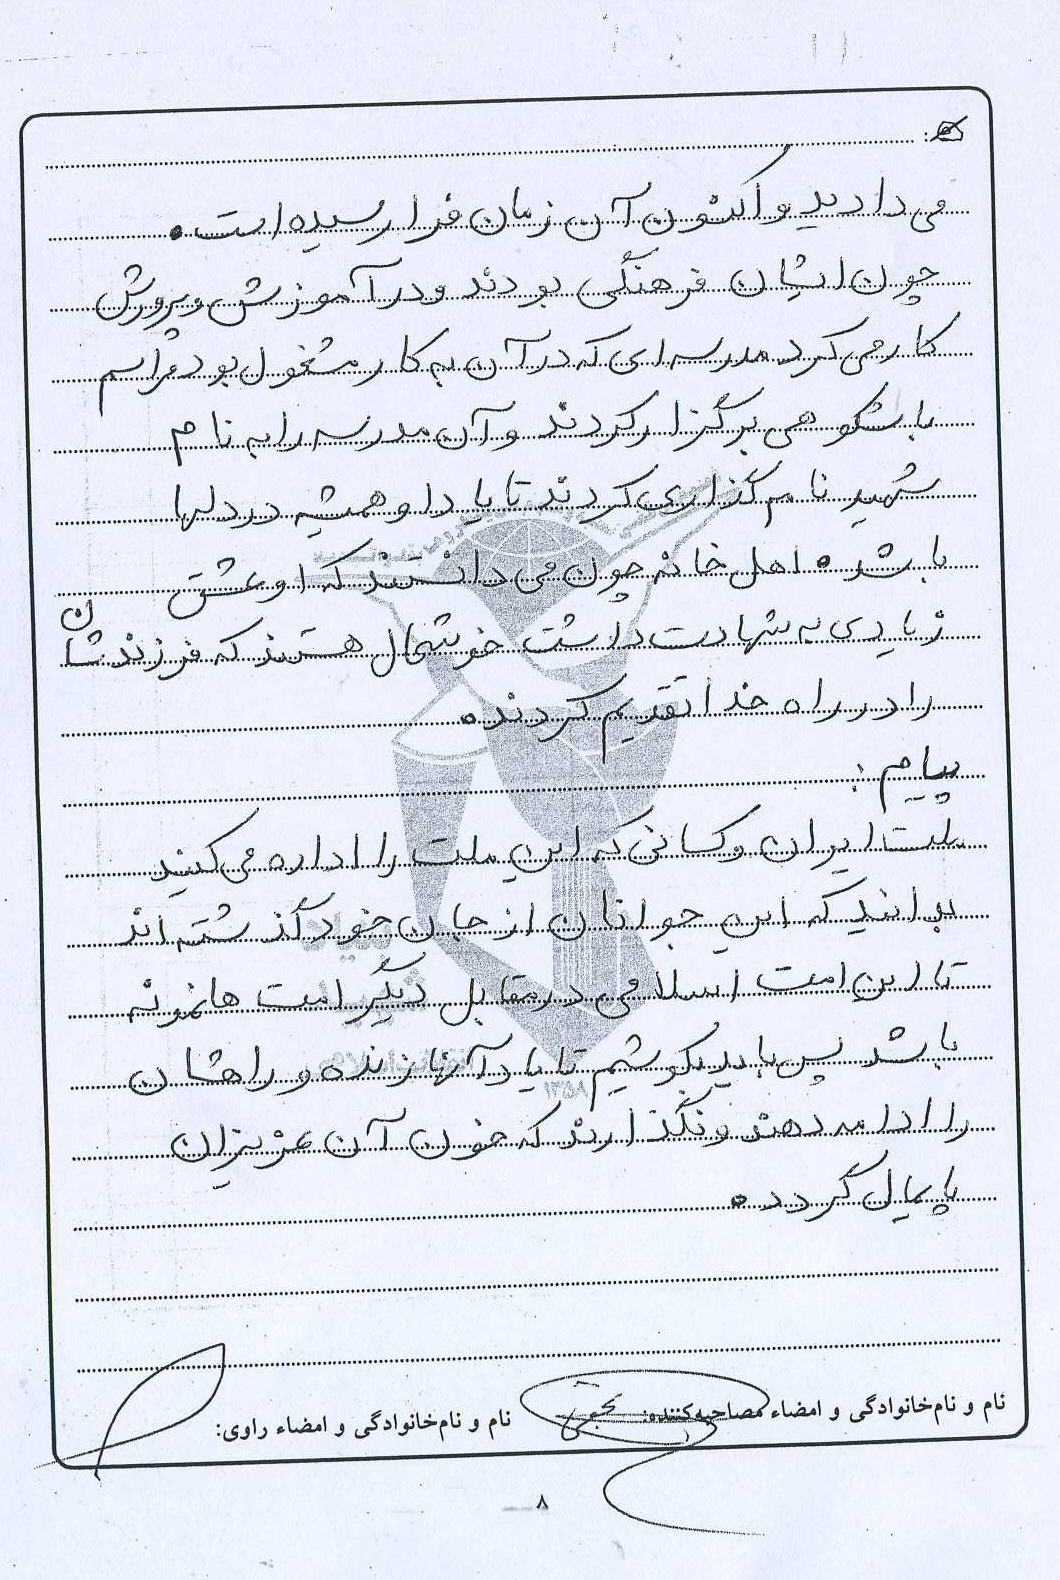 می دادید و اکنون آن زمان فرا رسیده است.
چون ایشان فرهنگی بودند و در آموزش و پرورش
کار می کرد مدرسه ای که در آن به کار مشغول بود مراسم
با شکوهی برگزار کردند و آن مدرسه را به نام
شهید نام گذاری کردند تا یاد او همیشه در دلها
باشد. اهل خانه چون می دانستند که او عشق
زیادی به شهادت داشت خوشحال هستند که فرزندشان
را در راه خدا تقدیم کردند.
پیام:
ملت ایران و کسانی که این ملت را اداره می کنید
بدانید که این جوانان از جان خود گذشته اند
تا این امت اسلامی در مقابل دیگر امت ها نمونه
باشد پس باید بکوشیم تا یاد آنها زنده و راهشان
را ادامه دهند و نگذارند که خون آن عزیزان
پایمال گردد.
۱۳۵۸
نام و نام‌خانوادگی و امضاء مصاحبه‌کننده:
نام و نام‌خانوادگی و امضاء راوی:
۸